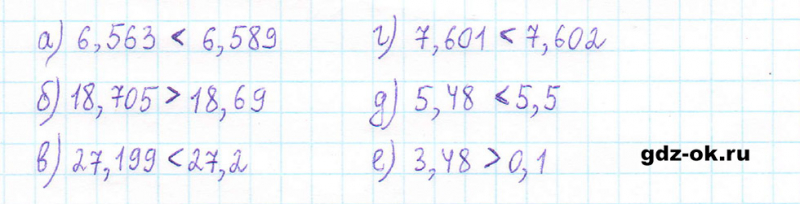 а) 6,563 < 6,589
б) 18,705 > 18,69
в) 27,199 < 27,2
г) 7,601 < 7,602
д) 5,48 < 5,5
е) 3,48 > 0,1
gdz-ok.ru